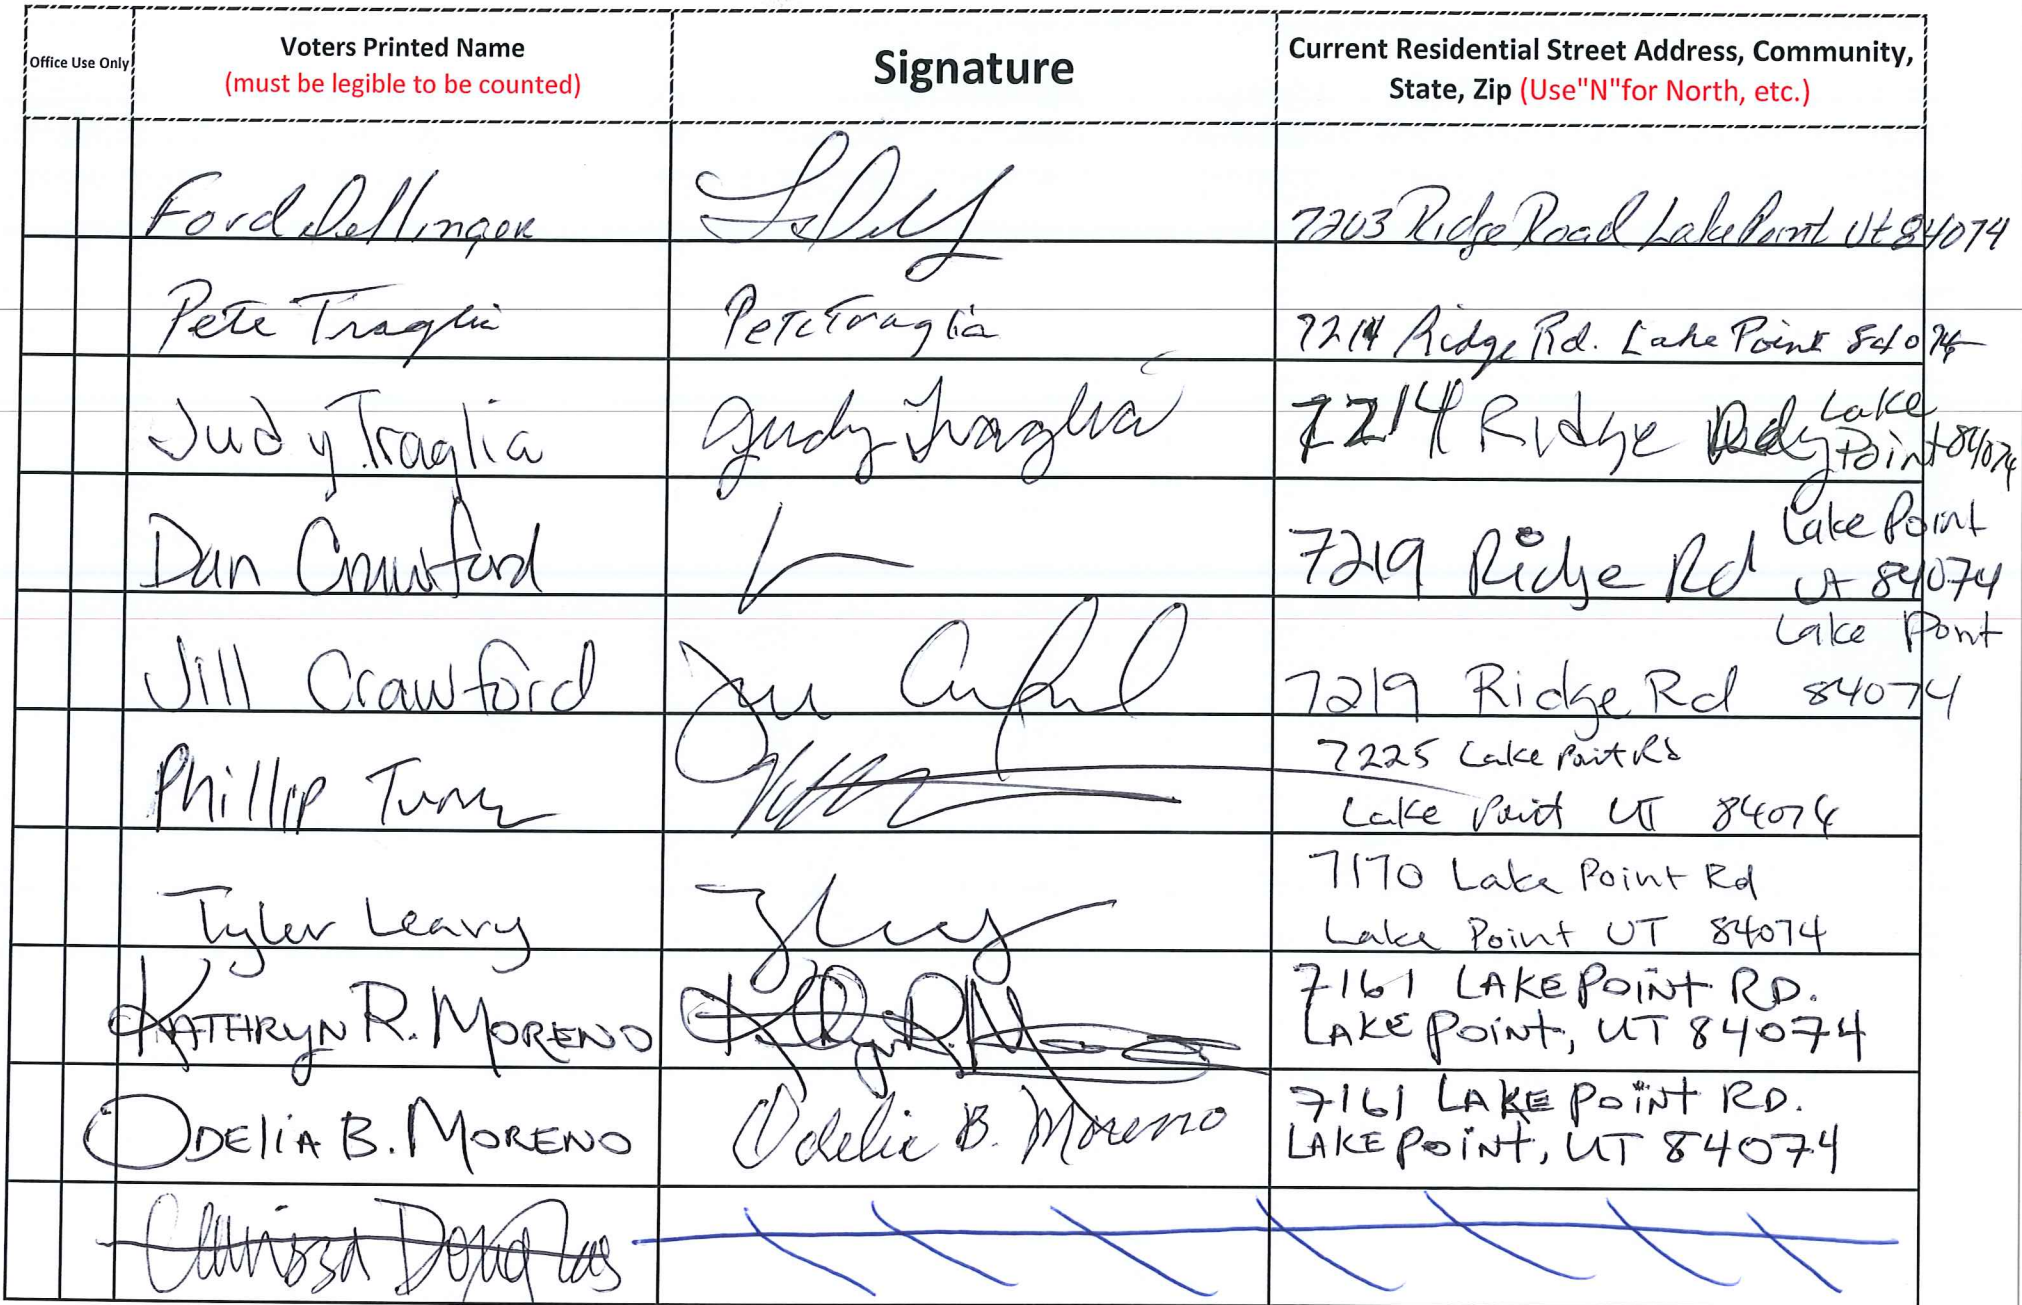 Office Use Only
Voters Printed Name
(must be legible to be counted)
Signature
Current Residential Street Address, Community,
State, Zip (Use"N"for North, etc.)
Ford Dellinger
7203 Ridge Road Lake Point Ut 84074
Pete Traglia
Pete Traglia
7214 Ridge Rd. Lake Point 84074
Judy Traglia
Judy Traglia
7214 Ridge Rd Lake
Point 84074
Dan Crawford
7219 Ridge Rd
Lake Point
UT 84074
Jill Crawford
Lake Pont
7219 Ridge Rd 84074
Phillip
7225 Lake Point Rd
Lake Point UT 84074
Tyler Leavy
7170 Lake Point Rd
Lake Point UT 84074
KATHRYN R. MORENO
7161 LAKE POINT RD.
LAKE POINT, UT 84074
ODELIA B. MORENO
Odelia B. Moreno
7161 LAKE POINT RD.
LAKE POINT, UT 84074
Douglas